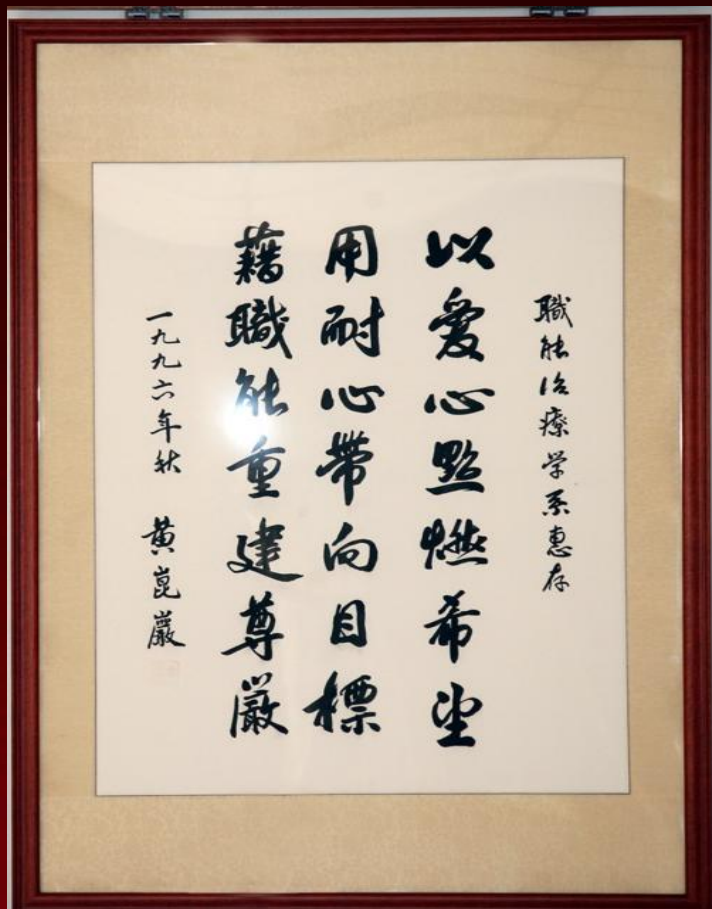 職能治療学系惠存
以愛心點燃希望
用耐心帶向目標
藉職能重建尊嚴
一九九六年秋 黃崑巖